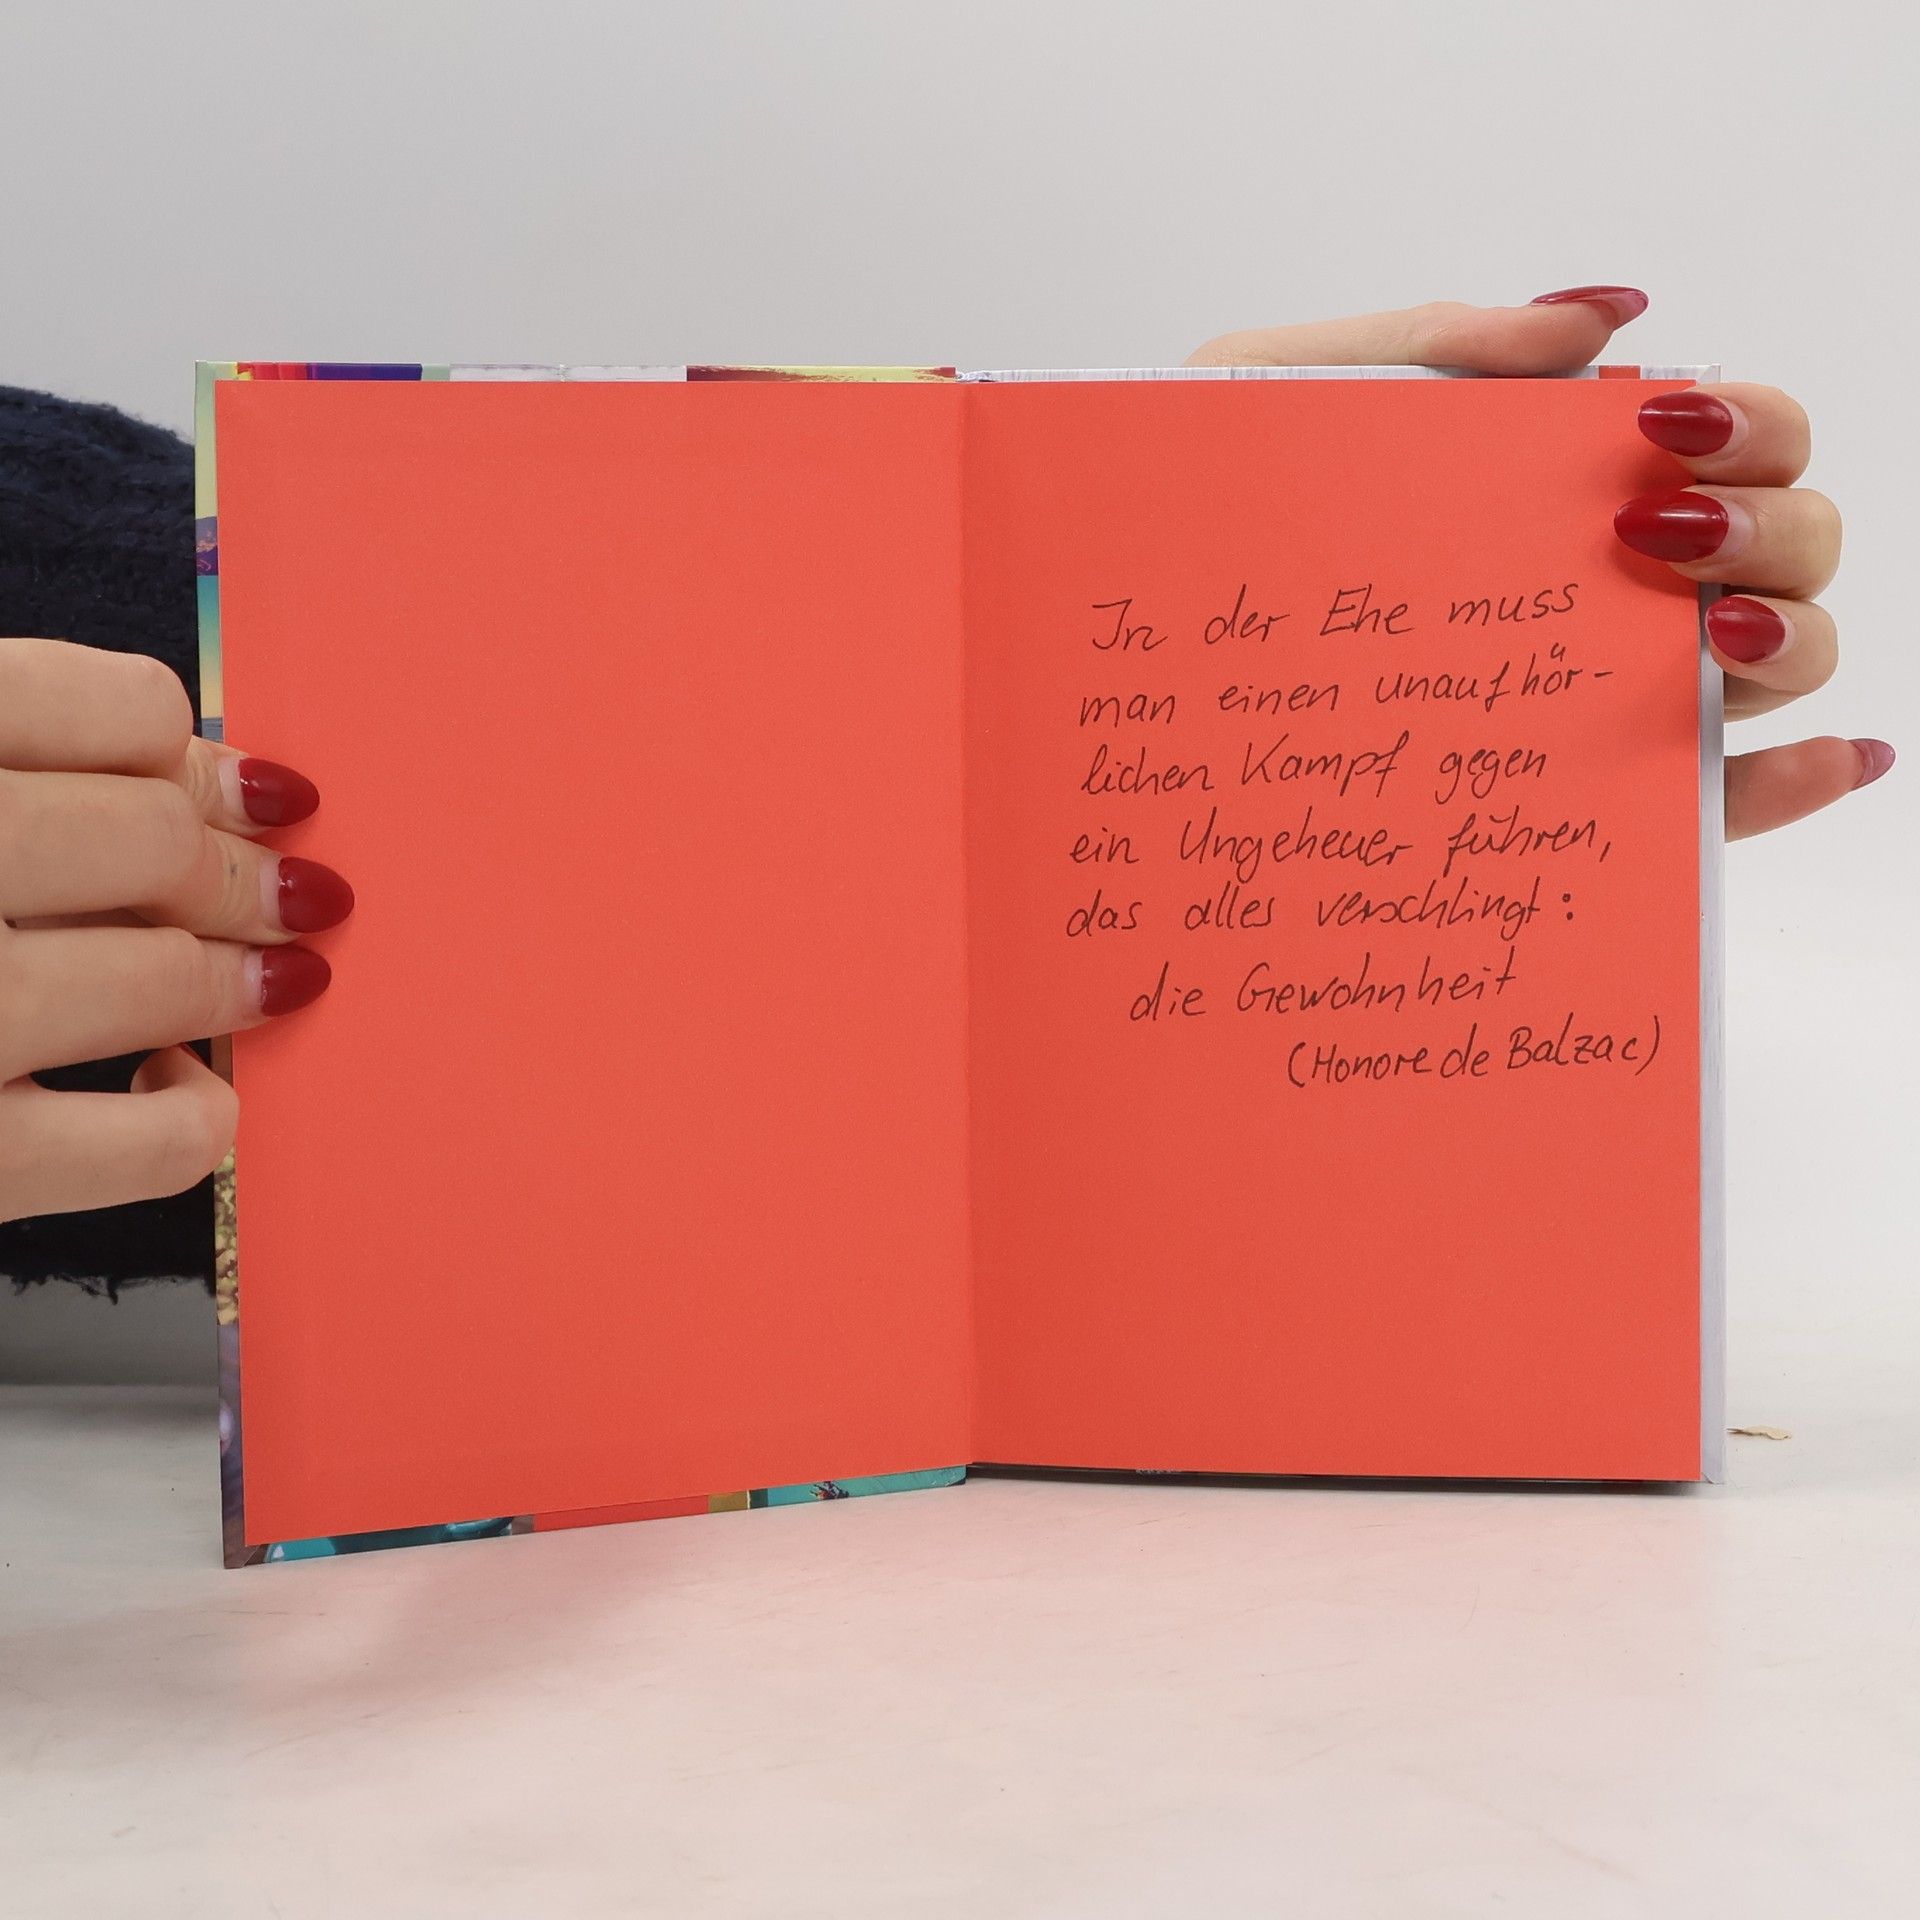 In der Ehe muss
man einen unaufhör-
lichen Kampf gegen
ein Ungeheuer führen,
das alles verschlingt:
die Gewohnheit
(Honore de Balzac)